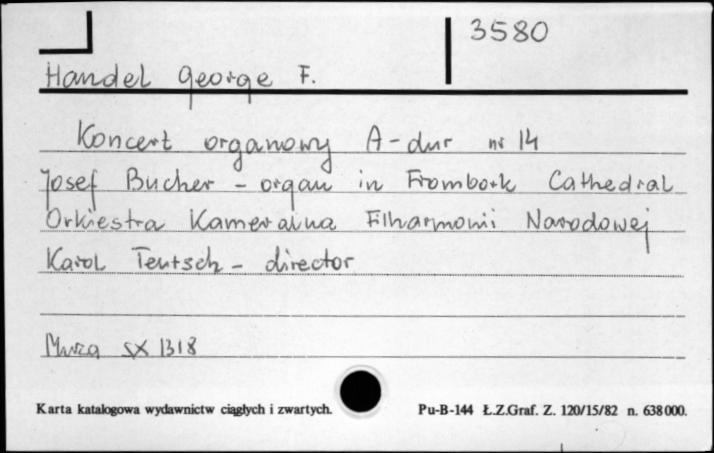 3580
Handel George F.
Koncert organowy A-dur nr 14
Josef Bucher - organ in Frombork Cathedral
Orkiestra Kameralna Filharmonii Narodowej
Karol Teutsch - director
Muza SX 1318
Karta katalogowa wydawnictw ciągłych i zwartych.
Pu-B-144 Ł.Z.Graf. Z. 120/15/82 n. 638000.